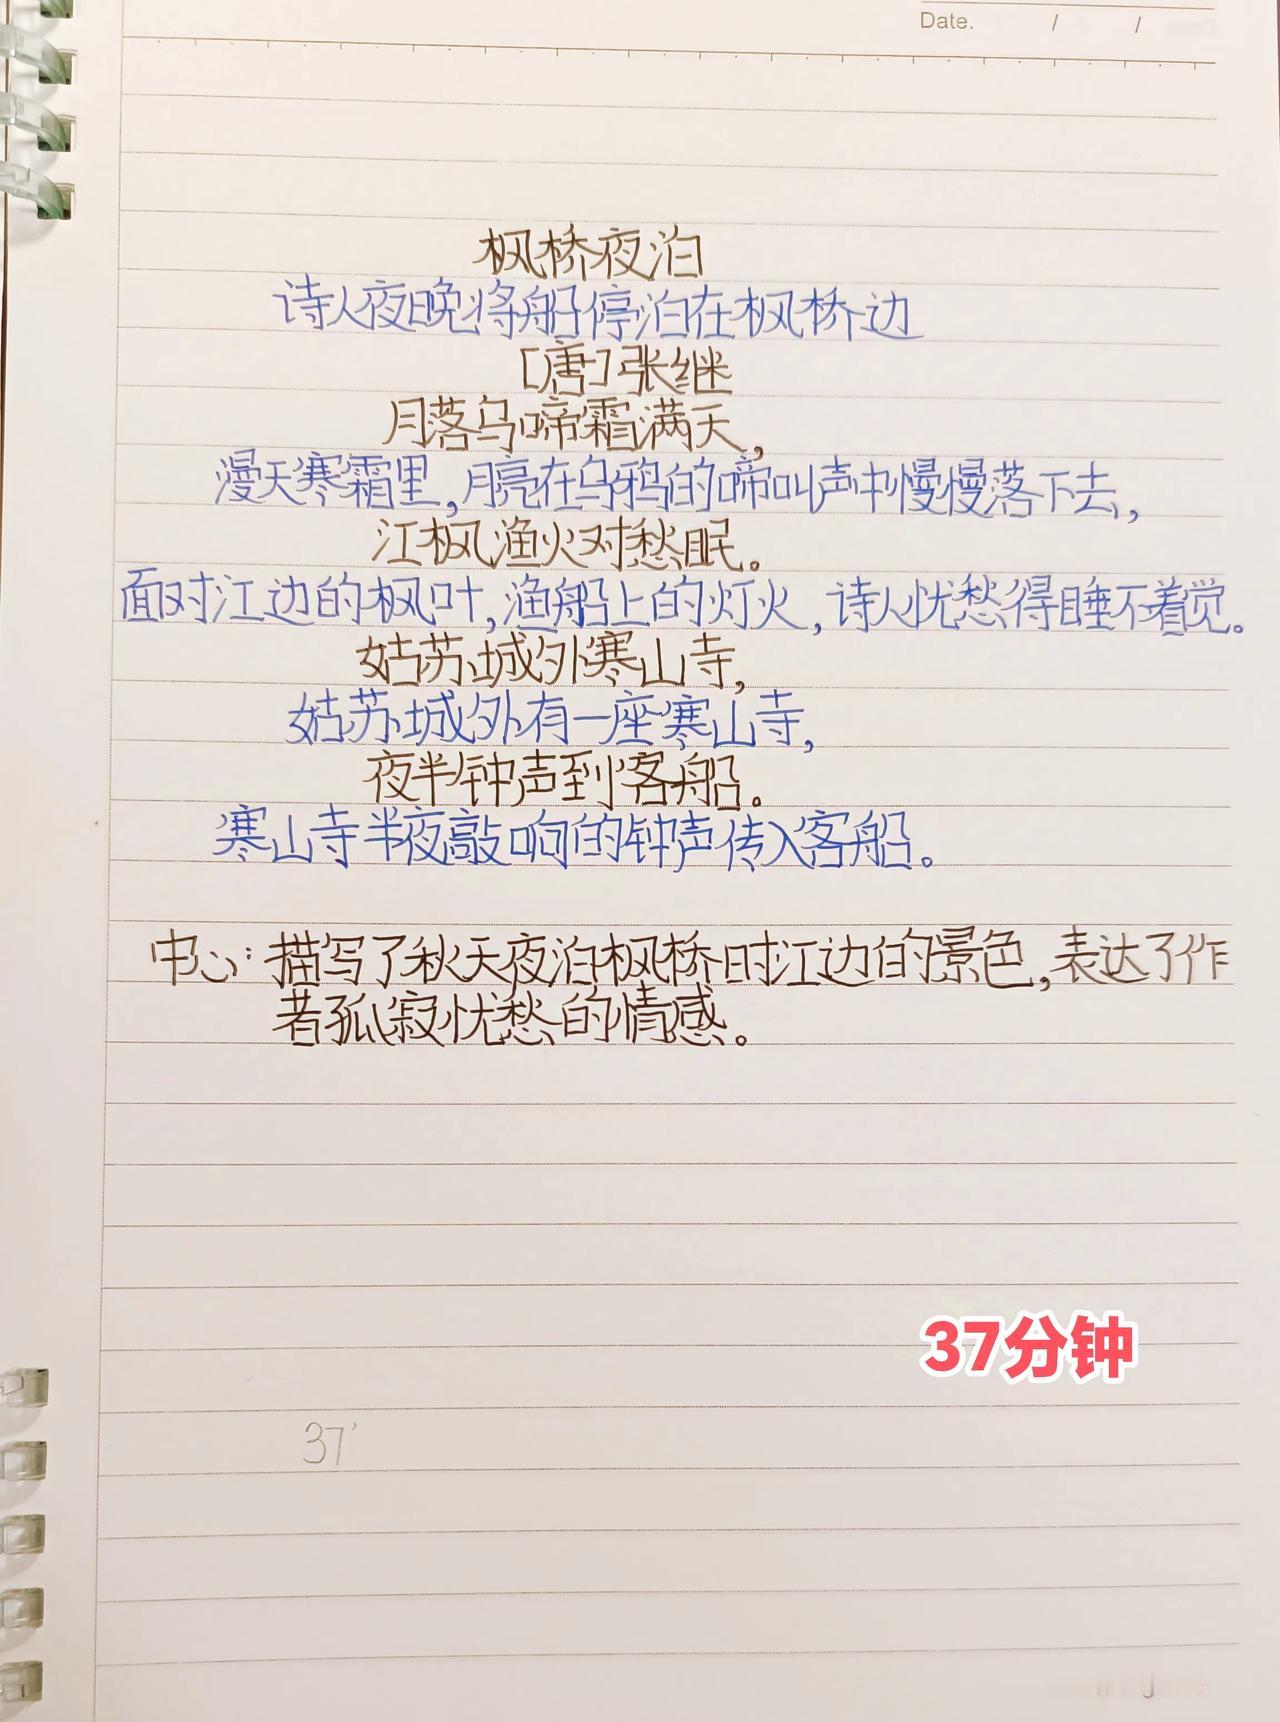 Date. / /
枫桥夜泊
诗人夜晚将船停泊在枫桥边
[唐]张继
月落乌啼霜满天,
漫天寒霜里,月亮在乌鸦的啼叫声中慢慢落下去,
江枫渔火对愁眠。
面对江边的枫叶,渔船上的灯火,诗人忧愁得睡不着觉。
姑苏城外寒山寺,
姑苏城外有一座寒山寺,
夜半钟声到客船。
寒山寺半夜敲响的钟声传入客船。
中心:描写了秋天夜泊枫桥时江边的景色,表达了作
者孤寂忧愁的情感。
37分钟
37'